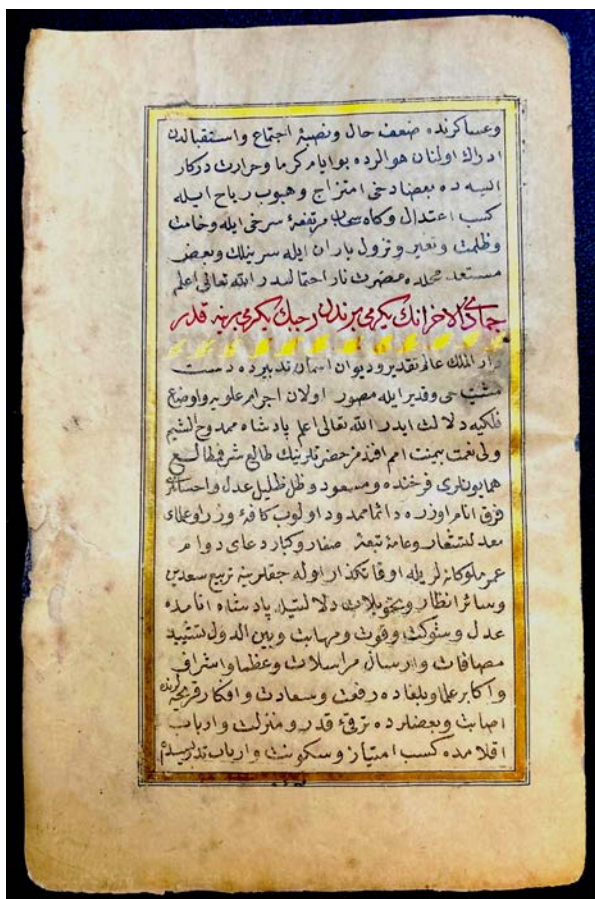 وعساكرنده ضعف حال ونصبهٔ اجتماع واستقبالدن
ادراك اولنان هوالرده بو ايام كرما وحرارت دركار
ايسه ده بعضا دخى امتزاج وهبوب رياح ايله
كسب اعتدال وكاه مرتفعهٔ سرخى ايله وخامت
وظلمت وتغير ونزول باران ايله سرينلك وبعض
مستعد محلده مضرت نار احتماليدر الله تعالى اعلم
جمادى الاخرانك يكرمى برندن رجبك يكرمى برينه قدر
دار الملك عالم تقدير وديوان اسمان تدبيرده دست
مشيت حى وقدير ايله مصور اولان اجرام علويه واوضاع
فلكيه دلالت ايدر الله تعالى اعلم پادشاه ممدوح الشيم
ولى نعمت بيمنت امم افندمز حضرتلرينك طالع شرف طالع
همايونلرى فرخنده ومسعود وظل ظليل عدل واحسانلرى
فرق انام اوزره دائما ممدود اولوب كافهٔ وزرا وعلماى
معدلتشعار وعامهٔ تبعهٔ صغار وكبار دعاى دوام
عمر ملوكانه لريله اوقاتكذار اوله جقلرينه تربيع سعدين
وسائر انظار وتحويلات دلالتيله پادشاه انامده
عدل وشوكت وقوت ومهابت وبين الدول تشييد
مصافات وارسال مراسلات وعظما واشراف
واكابر علما وبلغاده رفعت وسعادت وافكار قريحه لرنده
اصابت وبعضلرده ترقئ قدر ومنزلت وارباب
اقلامده كسب امتياز وسكونت وارباب